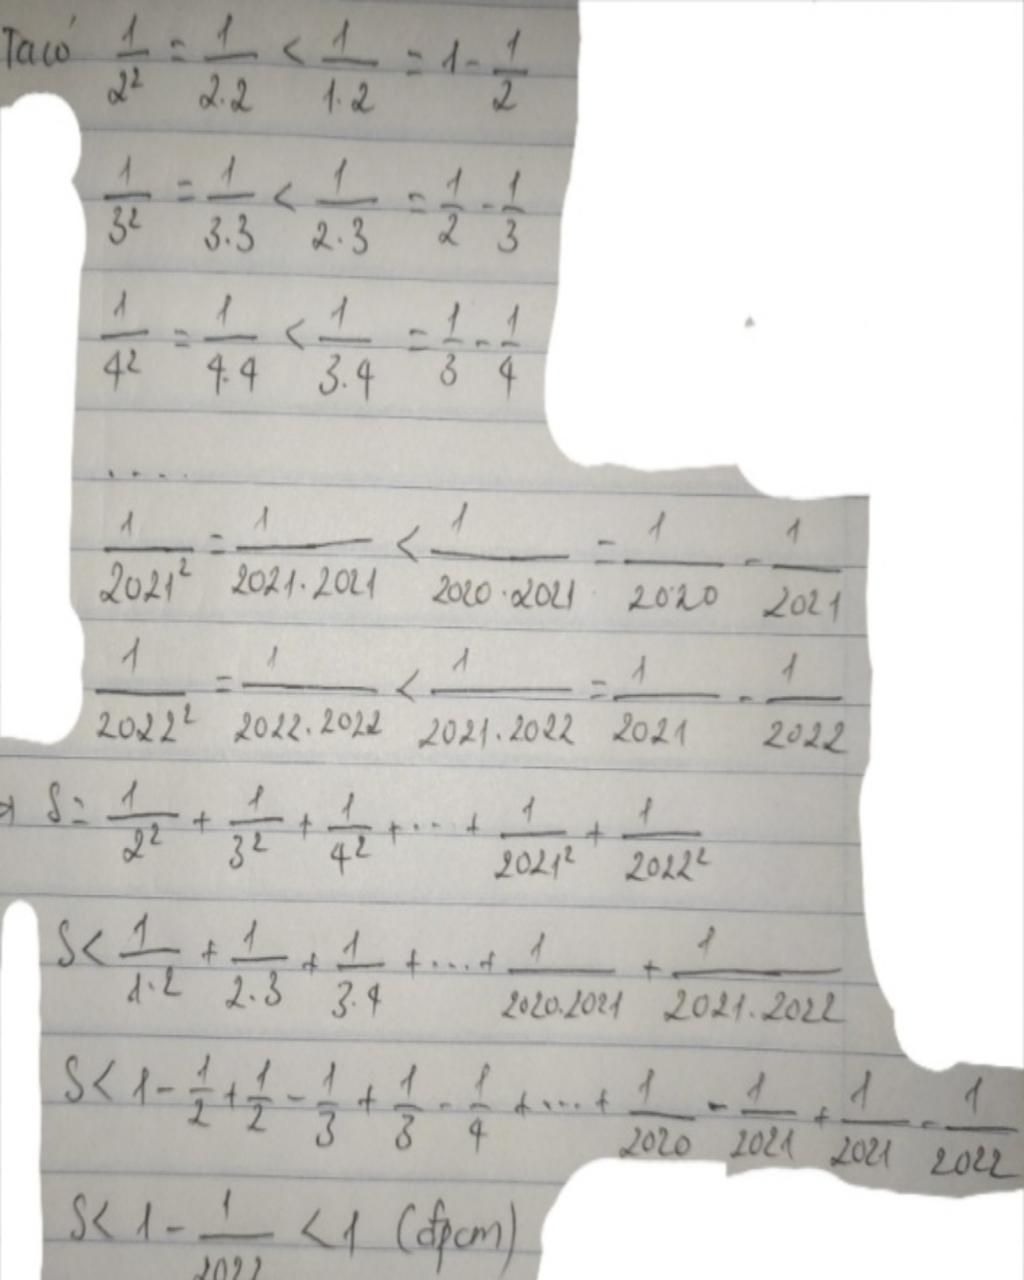 Ta có 1/2² = 1/2.2 < 1/1.2 = 1 - 1/2
1/3² = 1/3.3 < 1/2.3 = 1/2 - 1/3
1/4² = 1/4.4 < 1/3.4 = 1/3 - 1/4
....
1/2021² = 1/2021.2021 < 1/2020.2021 = 1/2020 - 1/2021
1/2022² = 1/2022.2022 < 1/2021.2022 = 1/2021 - 1/2022
S = 1/2² + 1/3² + 1/4² + ... + 1/2021² + 1/2022²
S < 1/1.2 + 1/2.3 + 1/3.4 + ... + 1/2020.2021 + 1/2021.2022
S < 1 - 1/2 + 1/2 - 1/3 + 1/3 - 1/4 + ... + 1/2020 - 1/2021 + 1/2021 - 1/2022
S < 1 - 1/2022 < 1 (đpcm)